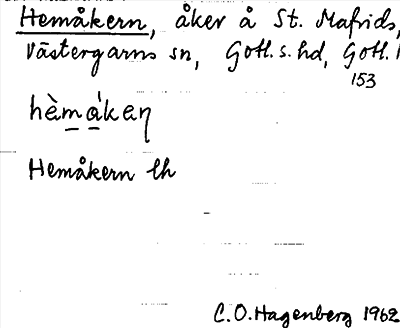 Hemåkern, åker å St. Mafrids,
Västergarns sn, Gotl. s. hd, Gotl. l
153
hèmåkaŋ
Hemåkern lh
C. O. Hagenberg 1962